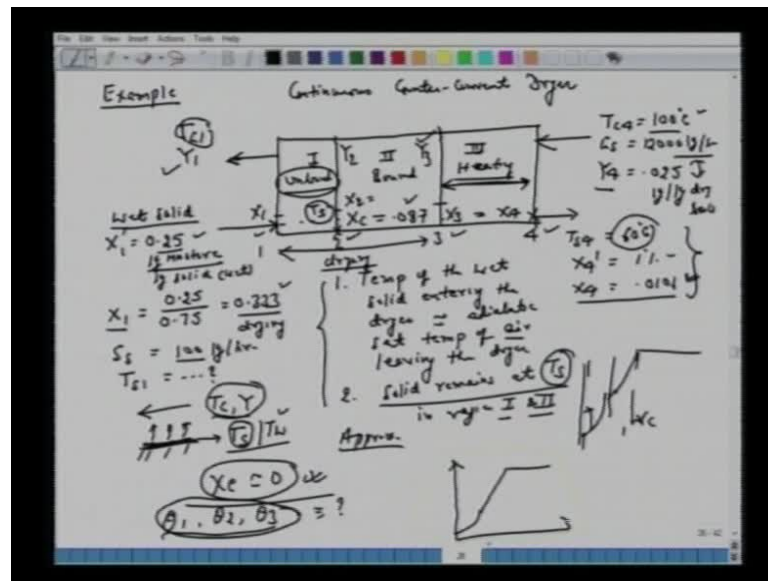 File Edit View Insert Actions Tools Help
Example
Continuous Counter-Current Dryer
TG1
Y1
I
Unbound
Y2
II
Bound
Y3
III
Heating
TG4 = 100°C
12000
Y4 = .025
Wet Solid
X1' = 0.25
X1
TS
X2 =
XC = .087
X3 = X4
1
2
3
4
TS4 = 60°C
X4' = 1%
X4 = .0101
X1 = 0.25 / 0.75 = 0.333
SS = 100
TS1 = ...?
drying
1. Temp of the wet
solid entering the
dryer = adiabatic
sat temp of air
leaving the dryer
2. Solid remains at TS
in I & II
Approx.
TG, Y
TS | TW
Xe = 0
θ1, θ2, θ3 = ?
XC